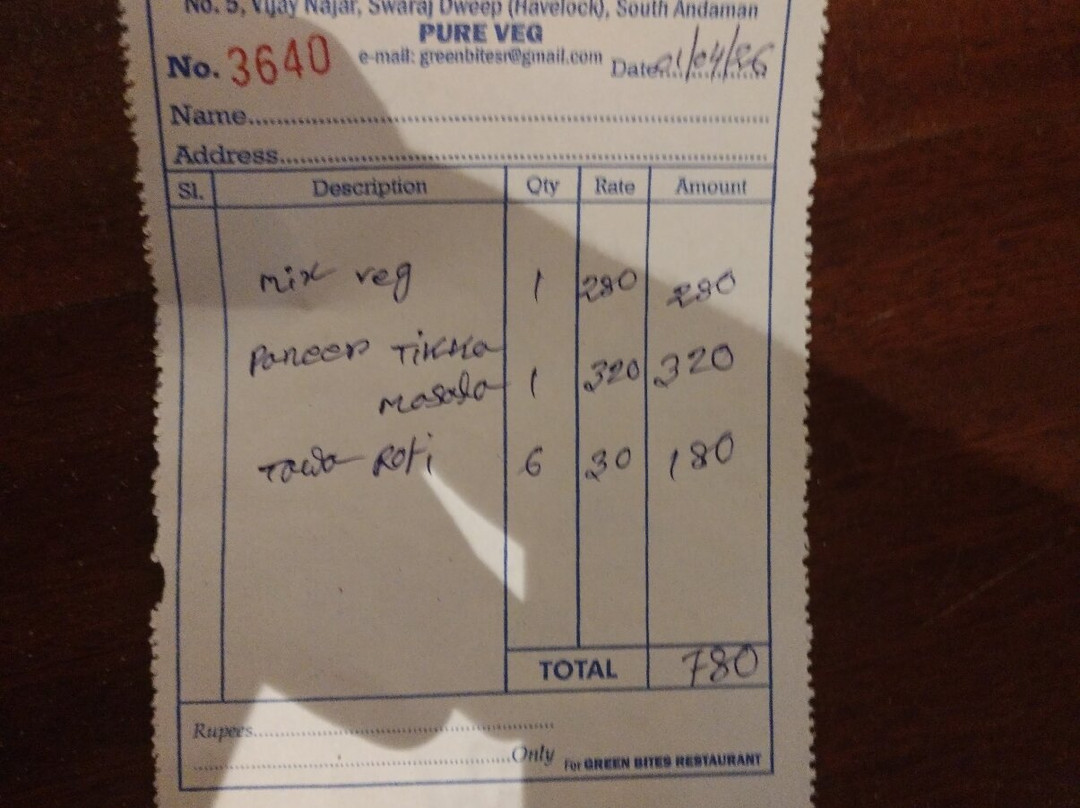 No. 5, Vijay Najar, Swaraj Dweep (Havelock), South Andaman
PURE VEG
e-mail: greenbitesr@gmail.com
No. 3640 Date 01/04/26
Name
Address
Sl. Description Qty Rate Amount
mix veg 1 280 280
Paneer Tikka
masala 1 320 320
Tawa Roti 6 30 180
TOTAL 780
Rupees
Only For GREEN BITES RESTAURANT